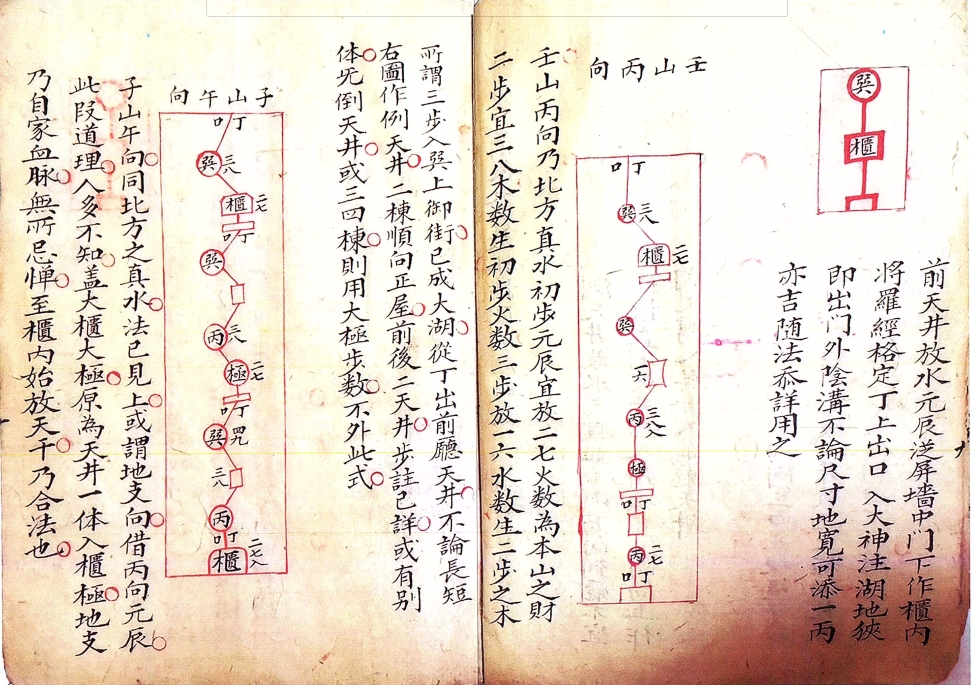 巽
櫃
前天井放水元辰送屏墻中門下作櫃內
將羅經格定丁上出口入大神注湖地狹
即出門外陰溝不論尺寸地寬可添一丙
亦吉随法叅詳用之
壬山丙向
丁口
巽 三八
櫃 二七
巽
一六
丙 三八入
極
丁口
丙 二七入
丁口
壬山丙向乃北方真水初步元辰宜放二七火数為本山之財
二步宜三八木数生初步火数三步放一六水数生二步之木
所謂三步入巽上御街已成大湖從丁出前廳天井不論長短
右圖作例天井二棟順向正屋前後二天井步註已詳或有别
体旡倒天井或三四棟則用大極步数不外此式
子山午向
丁口
巽 三八
櫃 二七
丁口
巽
丙 三八
極 二七
丁口
巽 四九
三八
丙
丁口
櫃 二七入
子山午向同北方之真水法已見上或謂地支向借丙向元辰
此段道理人多不知盖大櫃大極原為天井一体入櫃極地支
乃自家血脉無所忌憚至櫃內始放天干乃合法也